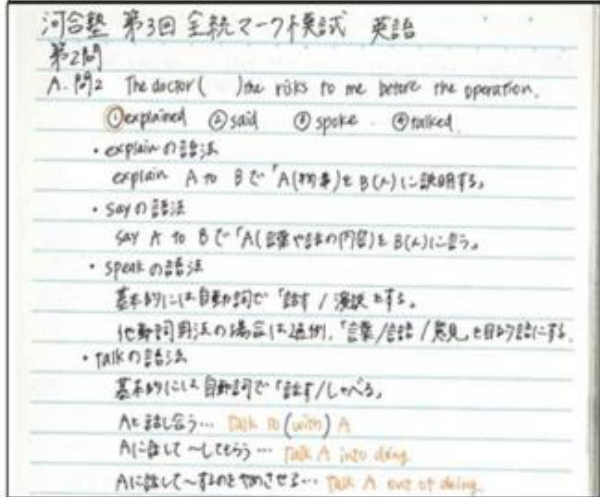 河合塾 第3回 全統マーク模試 英語
第2問
A. 問2 The doctor( )the risks to me before the operation.
①explained ②said ③spoke ④talked
・explainの語法
explain A to B で「A(物事)を B(人)に説明する」
・sayの語法
say A to B で「A(言葉や話の内容)を B(人)に言う」
・speakの語法
基本的には自動詞で「話す / 演説をする」
他動詞用法の場合は通例、「言葉/言語/意見」を目的語にする。
・talkの語法
基本的には自動詞で「話す/しゃべる」
Aと話し合う… talk to (with) A
Aに話して〜してもらう… talk A into doing
Aに話して〜するのをやめさせる… talk A out of doing